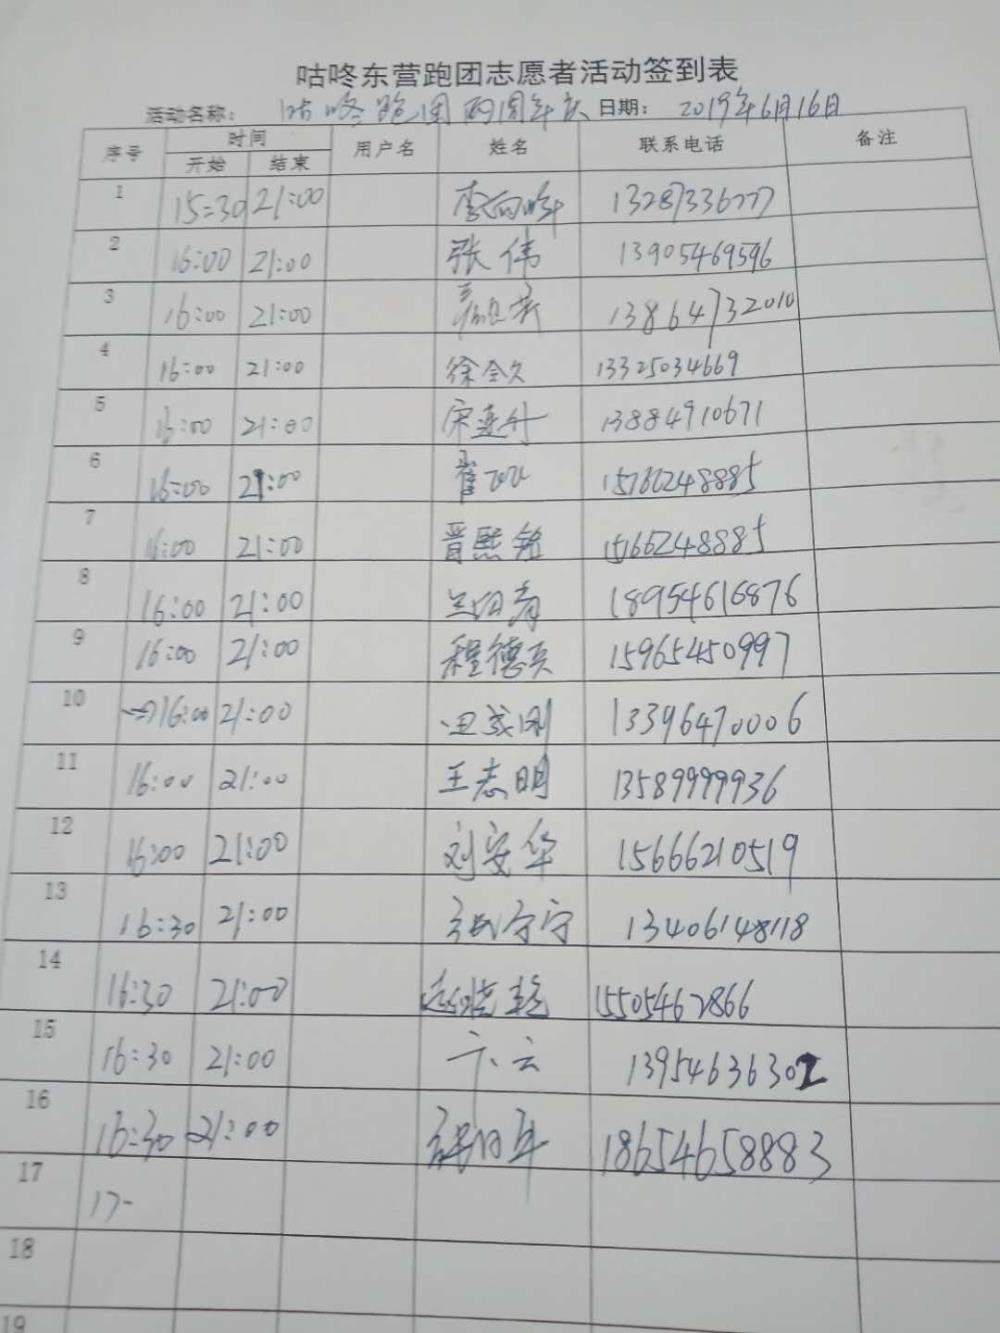 咕咚东营跑团志愿者活动签到表
活动名称： 咕咚跑团两周年庆 日期： 2019年6月16日
序号 时间 用户名 姓名 联系电话 备注
开始 结束
1 15:30 21:00 13287336777
2 16:00 21:00 张伟 13905469596
3 16:00 21:00 13864732010
4 16:00 21:00 徐全久 13325034669
5 16:00 21:00 宋连升 13884910671
6 16:00 21:00 崔 
7 16:00 21:00 晋熙铭 15166248885
8 16:00 21:00 兰 18954616876
9 16:00 21:00 程德兵 15965450997
10 16:00 21:00 13396470006
11 16:00 21:00 王志明 13589999936
12 16:00 21:00 刘安华 15666210519
13 16:30 21:00 宁宁 13406148118
14 16:30 21:00 15505462866
15 16:30 21:00 云 13954636302
16 16:30 21:00 18654658883
17 17-
18
19